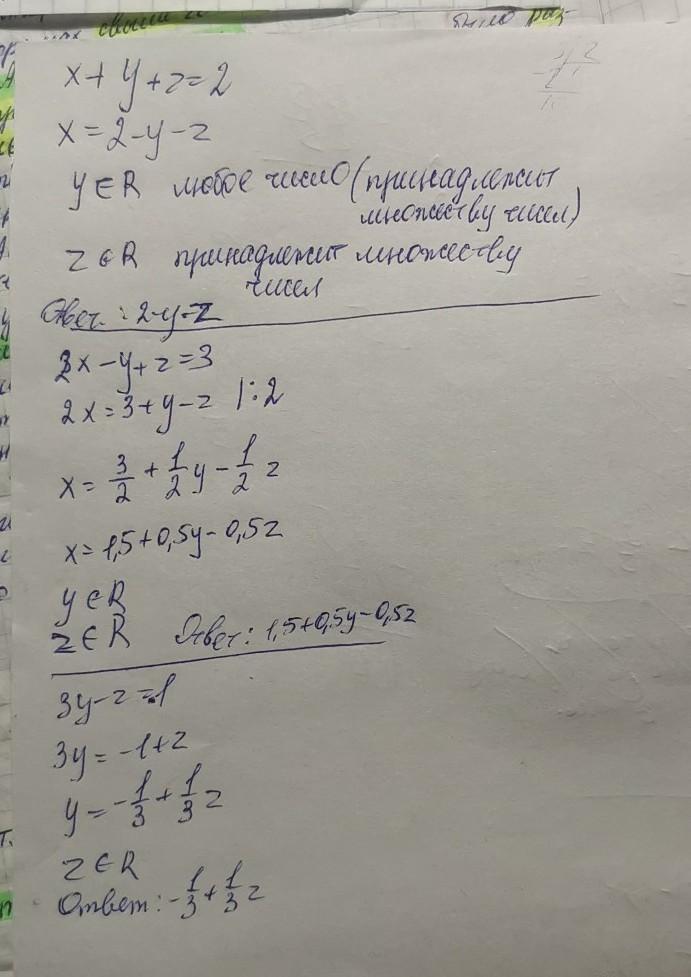 было раз
x + y + z = 2
x = 2 - y - z
y ∈ R любое число (принадлежит
множеству чисел)
z ∈ R принадлежит множеству
чисел
Ответ: 2-y-z
2x - y + z = 3
2x = 3 + y - z |:2
x = 3/2 + 1/2 y - 1/2 z
x = 1,5 + 0,5y - 0,5z
y ∈ R
z ∈ R Ответ: 1,5+0,5y-0,5z
3y - z = -1
3y = -1 + z
y = -1/3 + 1/3 z
z ∈ R
Ответ: -1/3 + 1/3 z